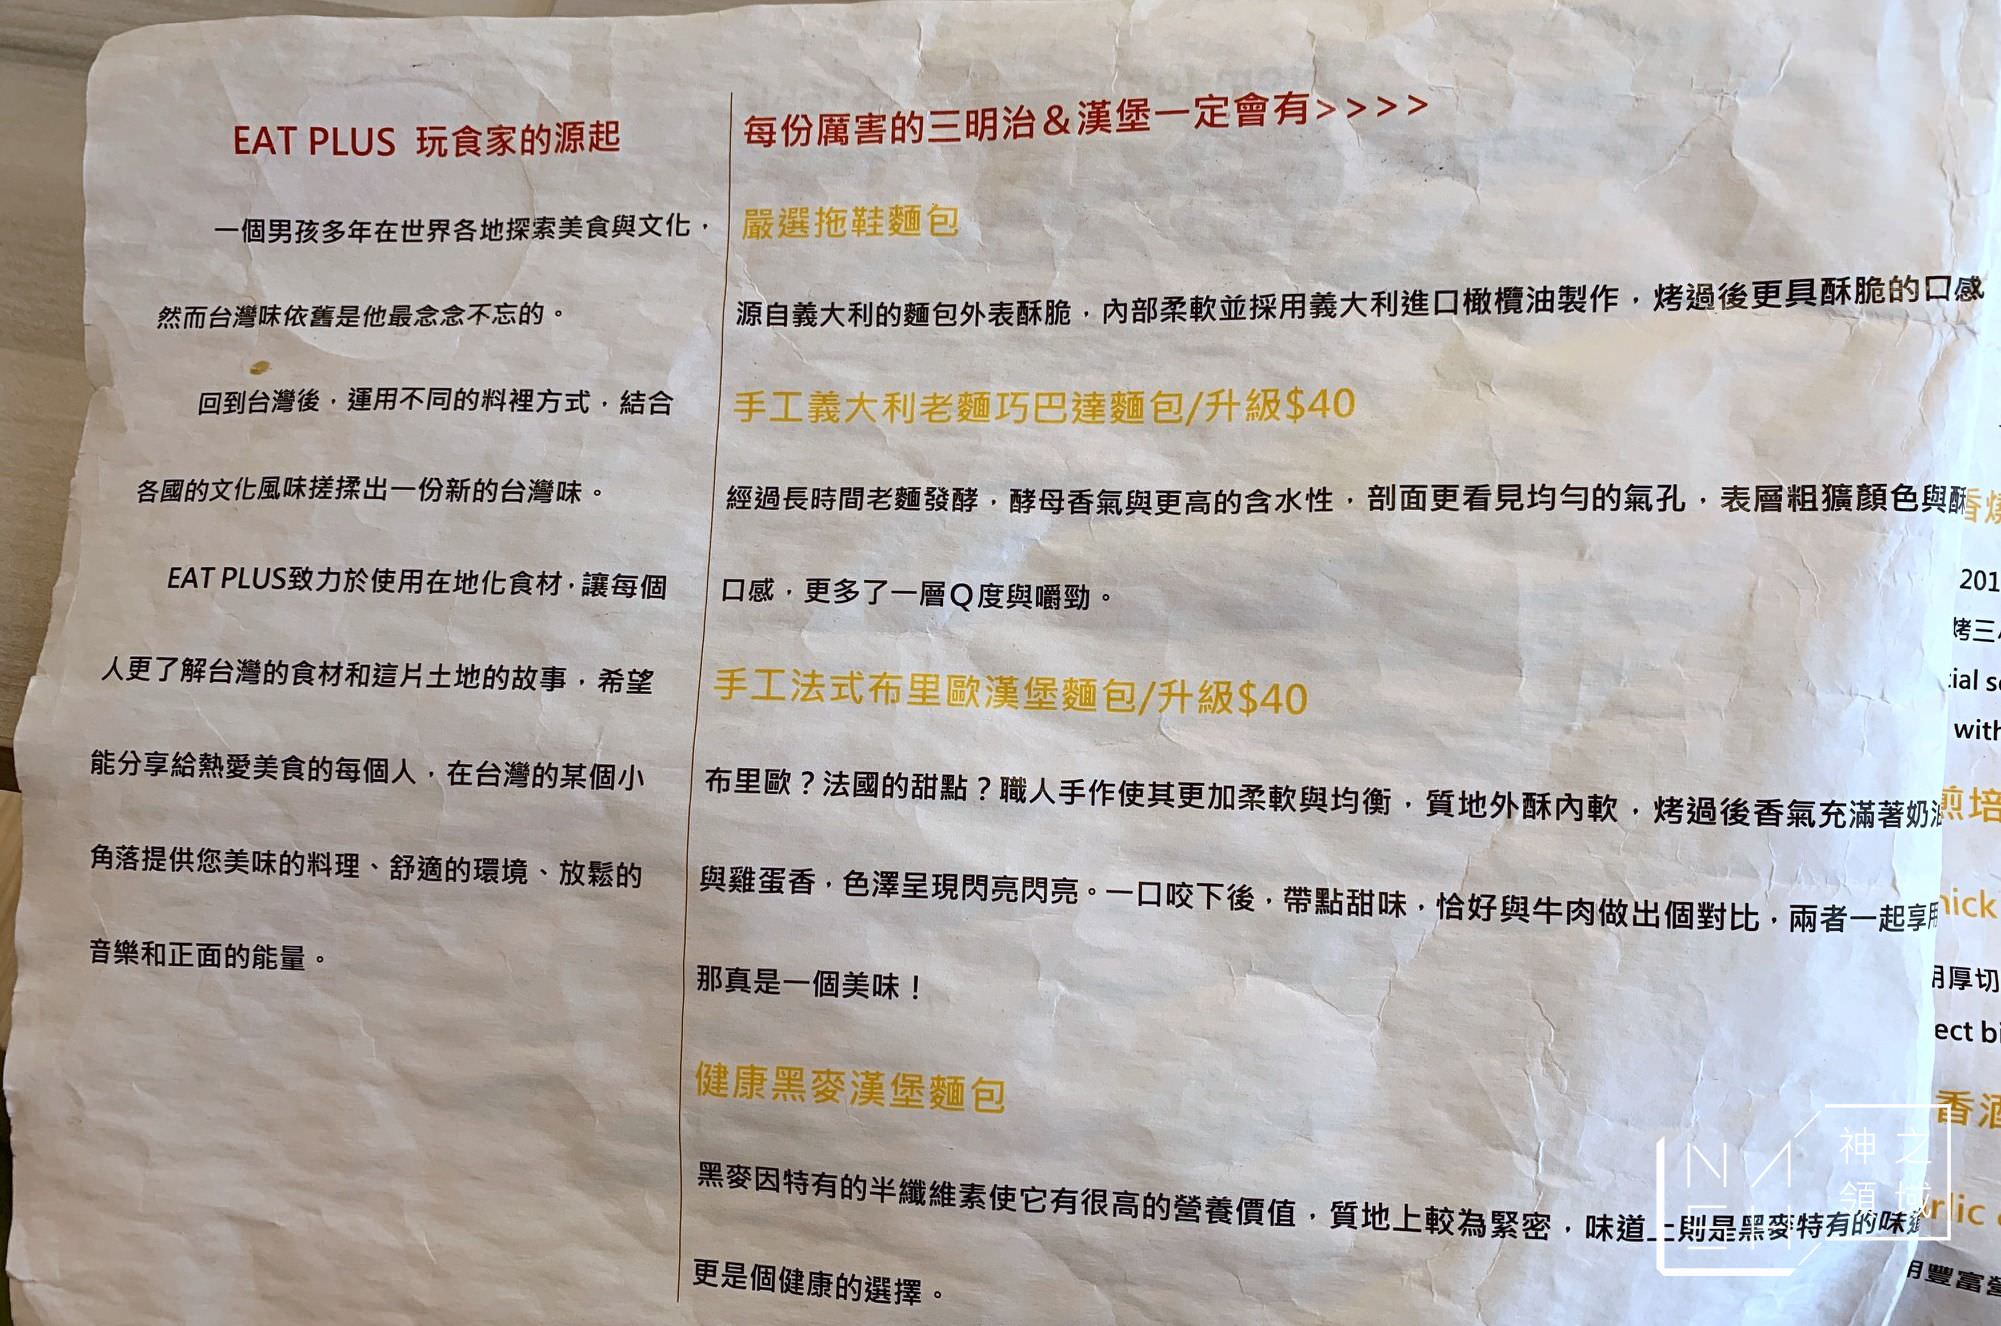 EAT PLUS 玩食家的源起
一個男孩多年在世界各地探索美食與文化，
然而台灣味依舊是他最念念不忘的。
回到台灣後，運用不同的料裡方式，結合
各國的文化風味搓揉出一份新的台灣味。
EAT PLUS致力於使用在地化食材，讓每個
人更了解台灣的食材和這片土地的故事，希望
能分享給熱愛美食的每個人，在台灣的某個小
角落提供您美味的料理、舒適的環境、放鬆的
音樂和正面的能量。
每份厲害的三明治＆漢堡一定會有>>>>
嚴選拖鞋麵包
源自義大利的麵包外表酥脆，內部柔軟並採用義大利進口橄欖油製作，烤過後更具酥脆的口感
手工義大利老麵巧巴達麵包/升級$40
經過長時間老麵發酵，酵母香氣與更高的含水性，剖面更看見均勻的氣孔，表層粗獷顏色與酥
口感，更多了一層Q度與嚼勁。
手工法式布里歐漢堡麵包/升級$40
布里歐？法國的甜點？職人手作使其更加柔軟與均衡，質地外酥內軟，烤過後香氣充滿著奶油
與雞蛋香，色澤呈現閃亮閃亮。一口咬下後，帶點甜味，恰好與牛肉做出個對比，兩者一起享用
那真是一個美味！
健康黑麥漢堡麵包
黑麥因特有的半纖維素使它有很高的營養價值，質地上較為緊密，味道上則是黑麥特有的味道
更是個健康的選擇。
香
201
烤三
ial s
with
煎培
hick
用厚切
ect bi
香酒
rlic
用豐富營
神之
領域